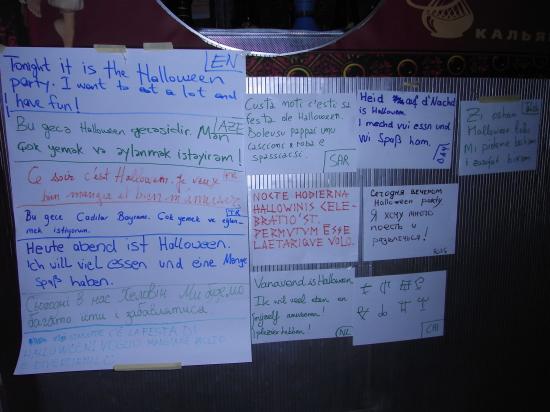 КАЛЬЯ
EN
Tonight it is the Halloween
party. I want to eat a lot and
have fun!
AZE
Bu gecə Halloween gecəsidir. Mən
Çok yemək və əylənmək istəyirəm!
FR
Ce soir c'est Halloween. Je veux
bien manger et bien m'amuser
TR
Bu gece Cadılar Bayramı. Çok yemek ve eğlen-
mek istiyorum.
Heute abend ist Halloween.
Ich will viel essen und eine Menge
Spaß haben.
Сьогодні в нас Геловін. Ми будемо
багато їсти і забавлятися
LA FESTA DI
HALLOWEEN! VOGLIO MANGIARE MOLTO
E DIVERTIRMI!
Custa noti c'est sa
festa de Halloween.
Boleus pappai unu
casscioni e roba e
spassiacsi.
SAR
Heid auf d'Nachd
is Halloween
I mechd vui essn und
Vui Spaß ham.
BAY
Zi osham
Halloween
NOCTE HODIERNA
HALLOWINIS CELE-
BRATIO'ST.
PERMULTUM ESSE
LAETARIQUE VOLO.
Сегодня вечером
Halloween party
Я хочу много
поесть и
развлечься!
RUS
Vanavond is Halloween
Ik wil veel eten en
mijzelf amuseren!
plezier hebben!
NL
CHI